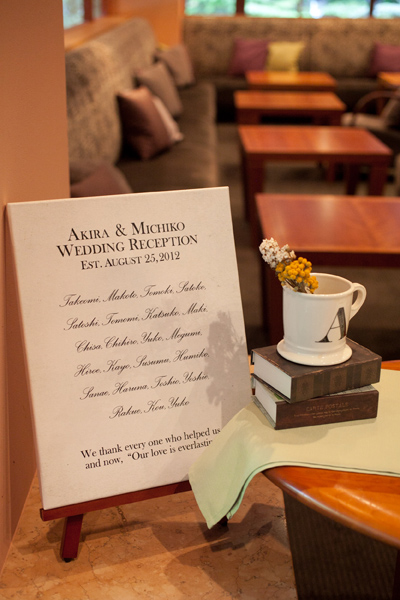 Akira & Michiko
Wedding Reception
Est. August 25, 2012
Takeomi, Makoto, Tomoki, Satoko,
Satoshi, Tomomi, Katsuko, Maki,
Chisa, Chihiro, Yuko, Megumi,
Hiroe, Kayo, Susumu, Humiko,
Sanae, Haruna, Toshio, Yoshie
Rakue, Kou, Yuko
We thank every one who helped us
and now, "Our love is everlasting
A